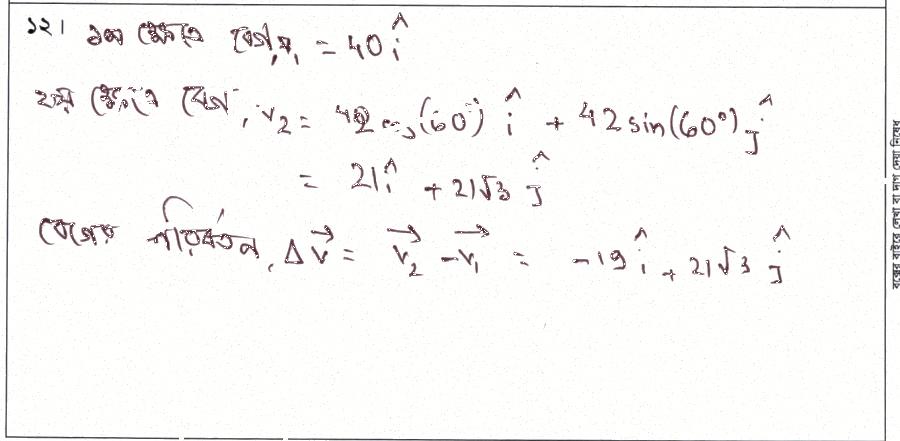 ১২। ১ম ক্ষেত্রে বেগ, v₁ = 40 î
২য় ক্ষেত্রে বেগ, v₂ = 42 cos(60°) î + 42 sin(60°) ĵ
= 21 î + 21√3 ĵ
বেগের পরিবর্তন, Δv⃗ = v⃗₂ - v⃗₁ = -19 î + 21√3 ĵ
বক্সের বাইরে লেখা বা দাগ দেয়া নিষেধ